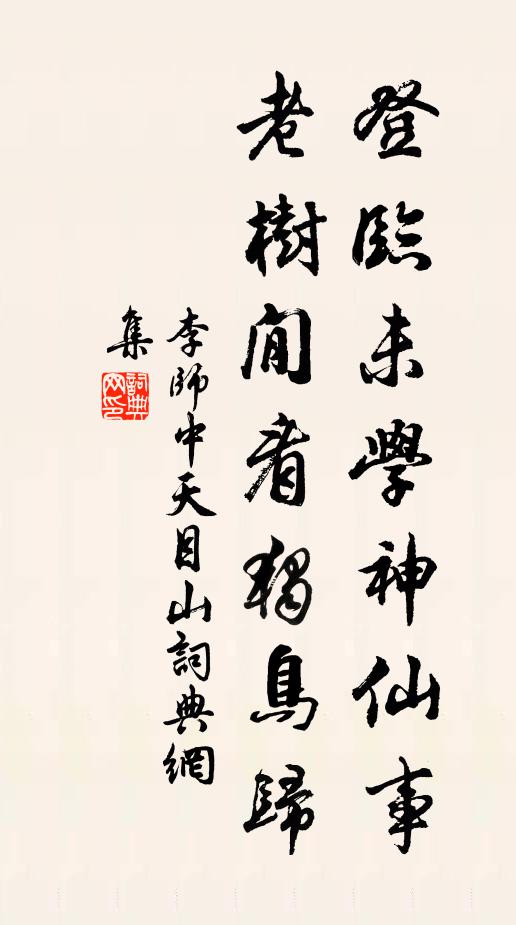 登臨未學神仙事
老樹閒看獨鳥歸
李師中天目山詞典網
集
詞典
网印